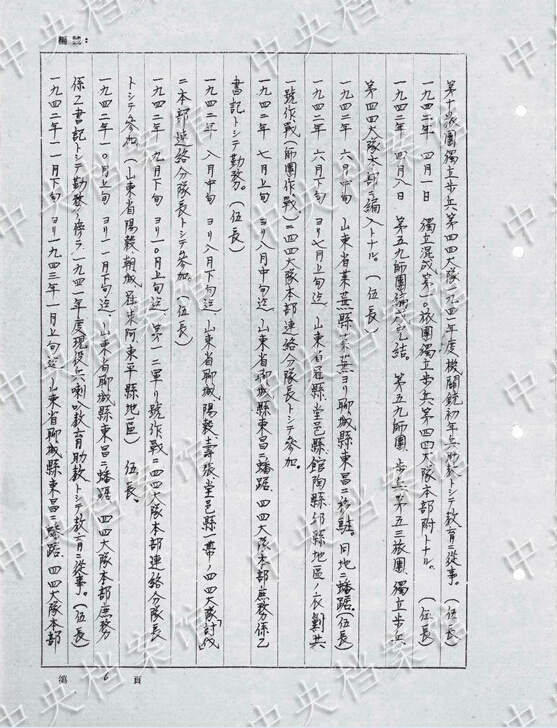 編號:
第十旅團獨立步兵第四四大隊一九四一年度機關銃初年兵助教トシテ教育ニ從事。(伍長)
一九四二年 四月一日 獨立混成第一〇旅團獨立步兵第四四大隊本部附トナル。 (伍長)
一九四二年 四月八日 第五九師團編成完結。 第五九師團 步兵第五三旅團 獨立步兵
第四四大隊本部ニ編入トナル。 (伍長)
一九四二年 六月中旬 山東省萊蕪縣萊蕪ヨリ聊城縣東昌ニ移駐。同地ニ蟠踞。(伍長)
一九四二年 六月下旬 ヨリ七月上旬迄 山東省冠縣、堂邑縣、館陶縣、邱縣地區ノ衣剿共
一號作戰(師團作戰)ニ四四大隊本部連絡分隊長トシテ參加。
一九四二年 七月上旬 ヨリ八月中旬迄 山東省聊城縣東昌ニ蟠踞。四四大隊本部庶務係乙
書記トシテ勤務。(伍長)
一九四二年 八月中旬 ヨリ八月下旬迄 山東省聊城、陽穀、壽張、堂邑縣一帶ノ四四大隊「討伐」
ニ本部連絡分隊長トシテ參加。(伍長)
一九四二年 九月下旬 ヨリ一〇月上旬迄、第一二軍リ號作戰ニ四四大隊本部連絡分隊長
トシテ參加。(山東省陽穀、朝城、莊、東阿、東平縣地區) 伍長、
一九四二年 一〇月上旬 ヨリ一一月下旬迄 山東省聊城縣東昌ニ蟠踞 四四大隊本部庶務
係乙書記トシテ勤務ノ傍ラ一九四一年度現役兵喇叭教育助教トシテ教育ニ從事。(伍長)
一九四二年 一一月下旬 ヨリ一九四三年一月上旬迄 山東省聊城縣東昌ニ蟠踞 四四大隊本部
第 6 頁
中央档案馆